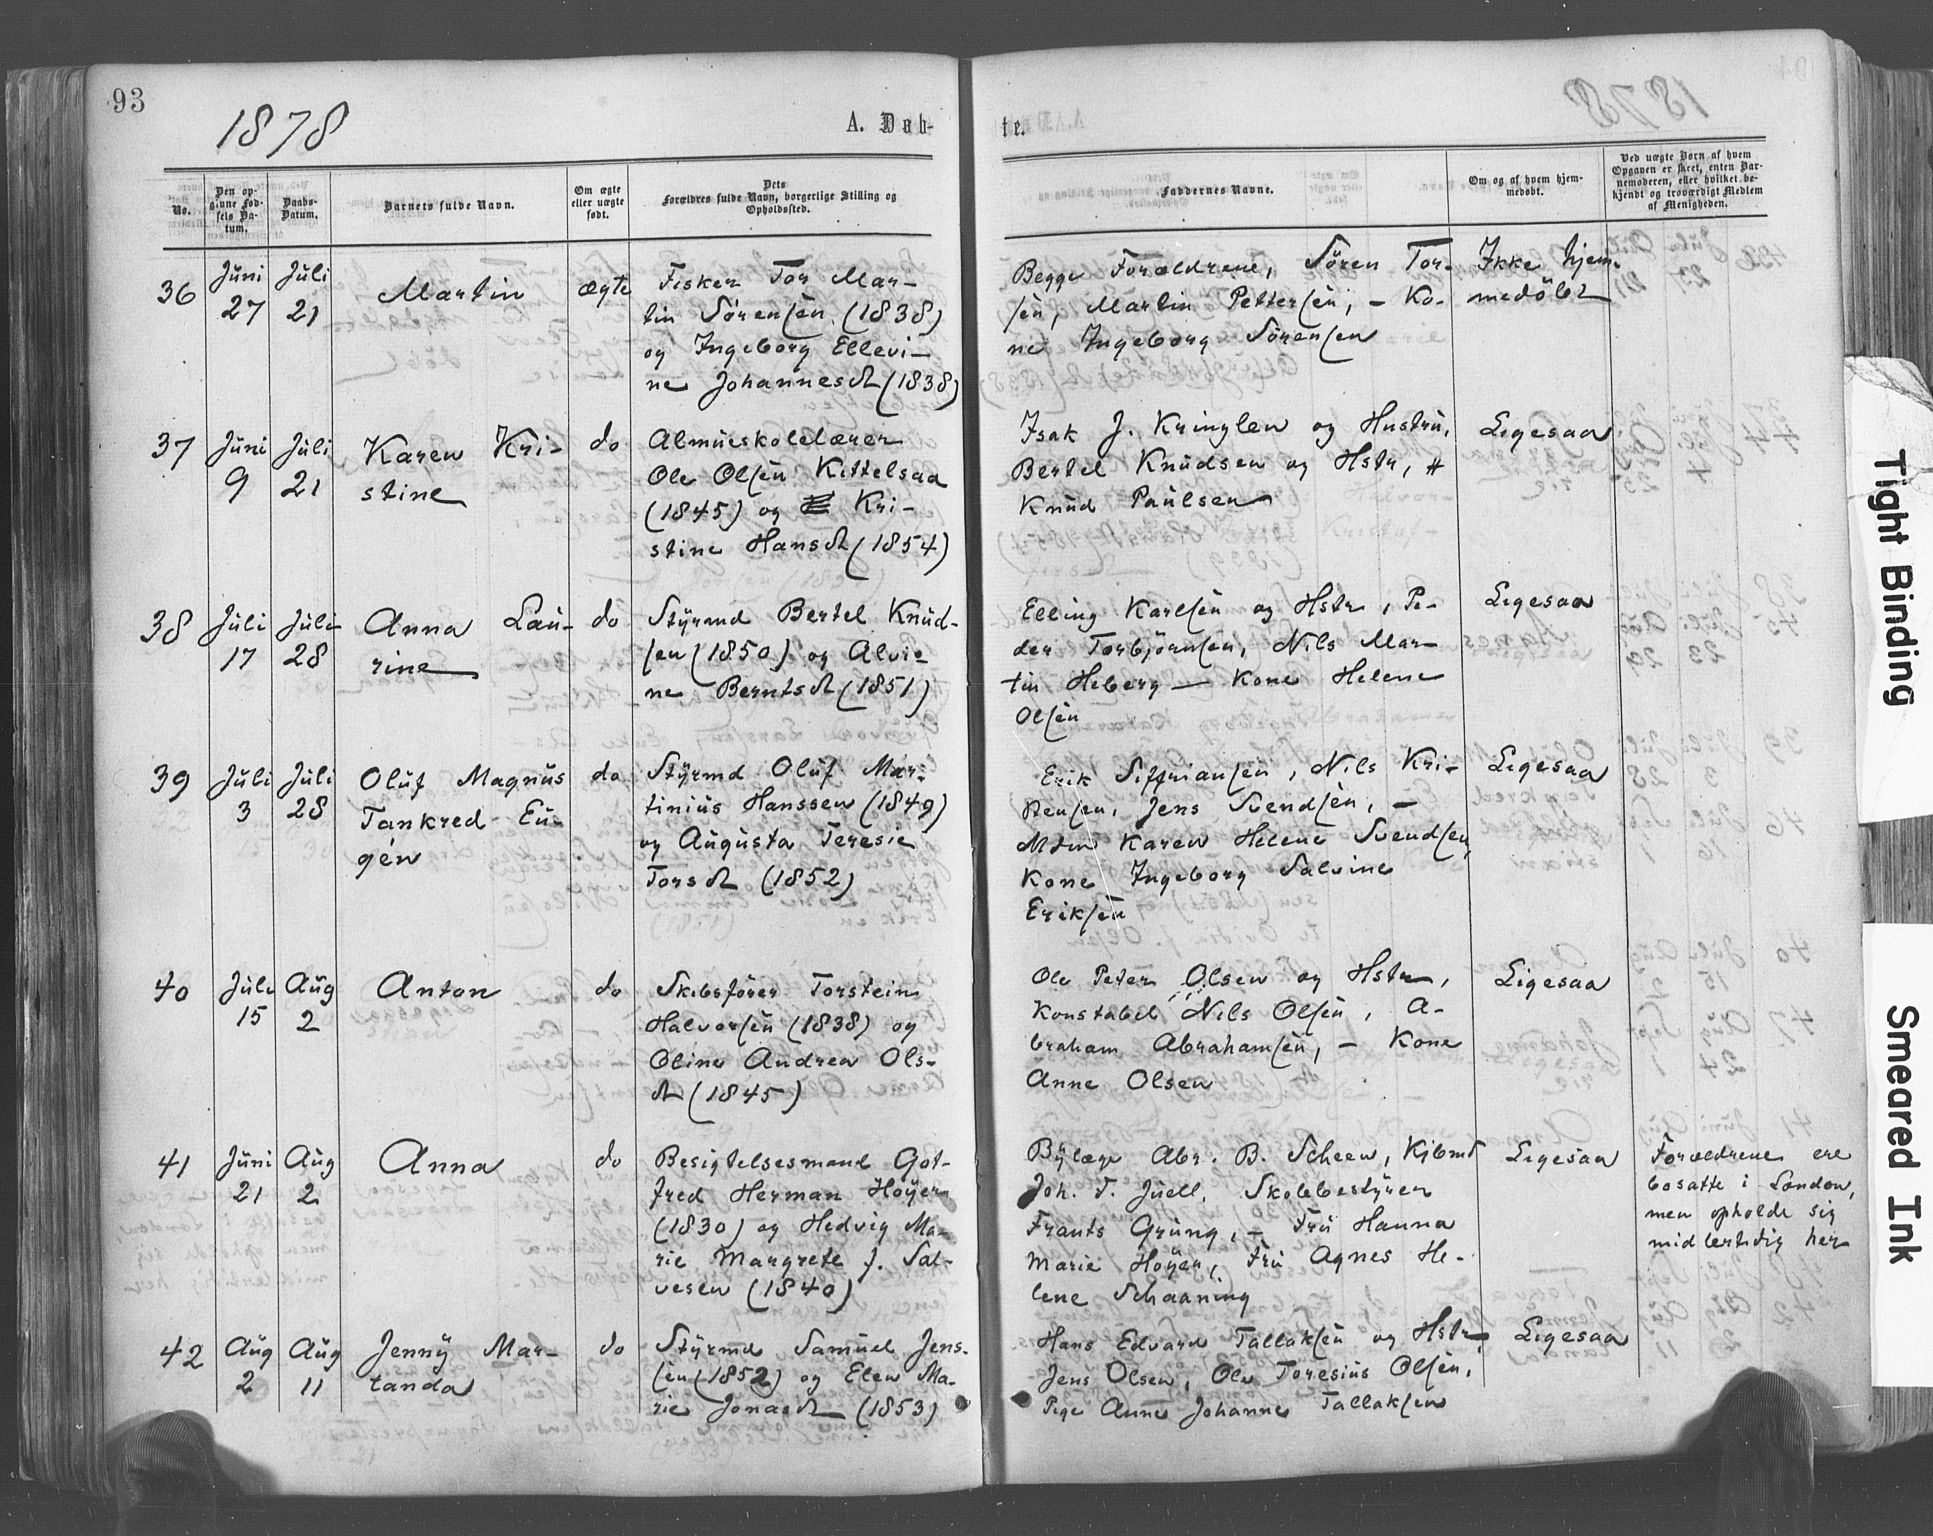 93
1878
A. Døb-
te.
No.
Den op-
givne Fød-
sels Da-
tum.
Daabs-
Datum.
Barnets fulde Navn.
Om ægte
eller uægte
født.
Dets
Forældres fulde Navn, borgerlige Stilling og
Opholdssted.
Faddernes Navne.
Om og af hvem hjem-
medøbt.
Ved uægte Børn af hvem
Opgaven er skeet, enten Bar-
nemoderen, eller hvilket be-
kjendt og troværdigt Medlem
af Menigheden.
36
Juni
27
Juli
21
Martin
ægte
Fisker Tor Mar-
tin Sørensen (1838)
og Ingeborg Ellevi-
ne Johannesdt (1838)
Begge Forældrene, Sören Tor-
sen, Martin Pettersen, – Ko-
ne Ingeborg Sørensen
Ikke hjem-
medöbt
37
Juni
9
Juli
21
Karen Kri-
stine
do
Almueskolelærer
Ole Olsen Kittelsaa
(1845) og Kri-
stine Hansdt (1854)
Isak J. Kringlen og Hustru,
Bertel Knudsen og Hstr, #
Knud Paulsen
Ligesaa
38
Juli
17
Juli
28
Anna Lau-
rine
do
Styrmd Bertel Knud-
sen (1850) og Alvi-
ne Berntsdt (1851)
Elling Karlsen og Hstr, Pe-
der Torbjörnsen, Nils Mar-
tin Heberg – Kone Helene
Olsen
Ligesaa
39
Juli
3
Juli
28
Oluf Magnus
Tankred Eu-
gén
do
Styrmd Oluf Mar-
tinius Hanssen (1849)
og Augusta Teresie
Torsdt (1852)
Erik Siffriansen, Nils Kri-
stensen, Jens Svendsen, –
Mdm Karen Helene Svendsen,
Kone Ingeborg Salvine
Eriksen
Ligesaa
40
Juli
15
Aug
2
Anton
do
Skibsförer Torstein
Halvorsen (1838) og
Oline Andrea Ols-
dt (1845)
Ole Peter Olsen og Hstr,
Konstabel Nils Olsen, A-
braham Abrahamsen, – Kone
Anne Olsen
Ligesaa
41
Juni
21
Aug
2
Anna
do
Besigtelsesmand Got-
fred Herman Höyer
(1830) og Hedvig Ma-
rie Margrete f. Sal-
vesen (1840)
Bylæge Abr. B. Scheen, Kjbmd
Joh. T. Juell, Skolebestyrer
Frants Grung, – Fru Hanna
Marie Höyer, Fru Agnes He-
lene Schaaning
Ligesaa
Forældrene ere
bosatte i London,
men opholde sig
midlertidig her
42
Aug
2
Aug
11
Jenny Mar-
tanda
do
Styrmd Samuel Jens-
sen (1852) og Elen Ma-
rie Jonasdt (1853)
Hans Edvard Tallaksen og Hstr,
Jens Olsen, Ole Toresius Olsen,
Pige Anne Johanne Tallaksen
Ligesaa
Tight Binding
Smeared Ink